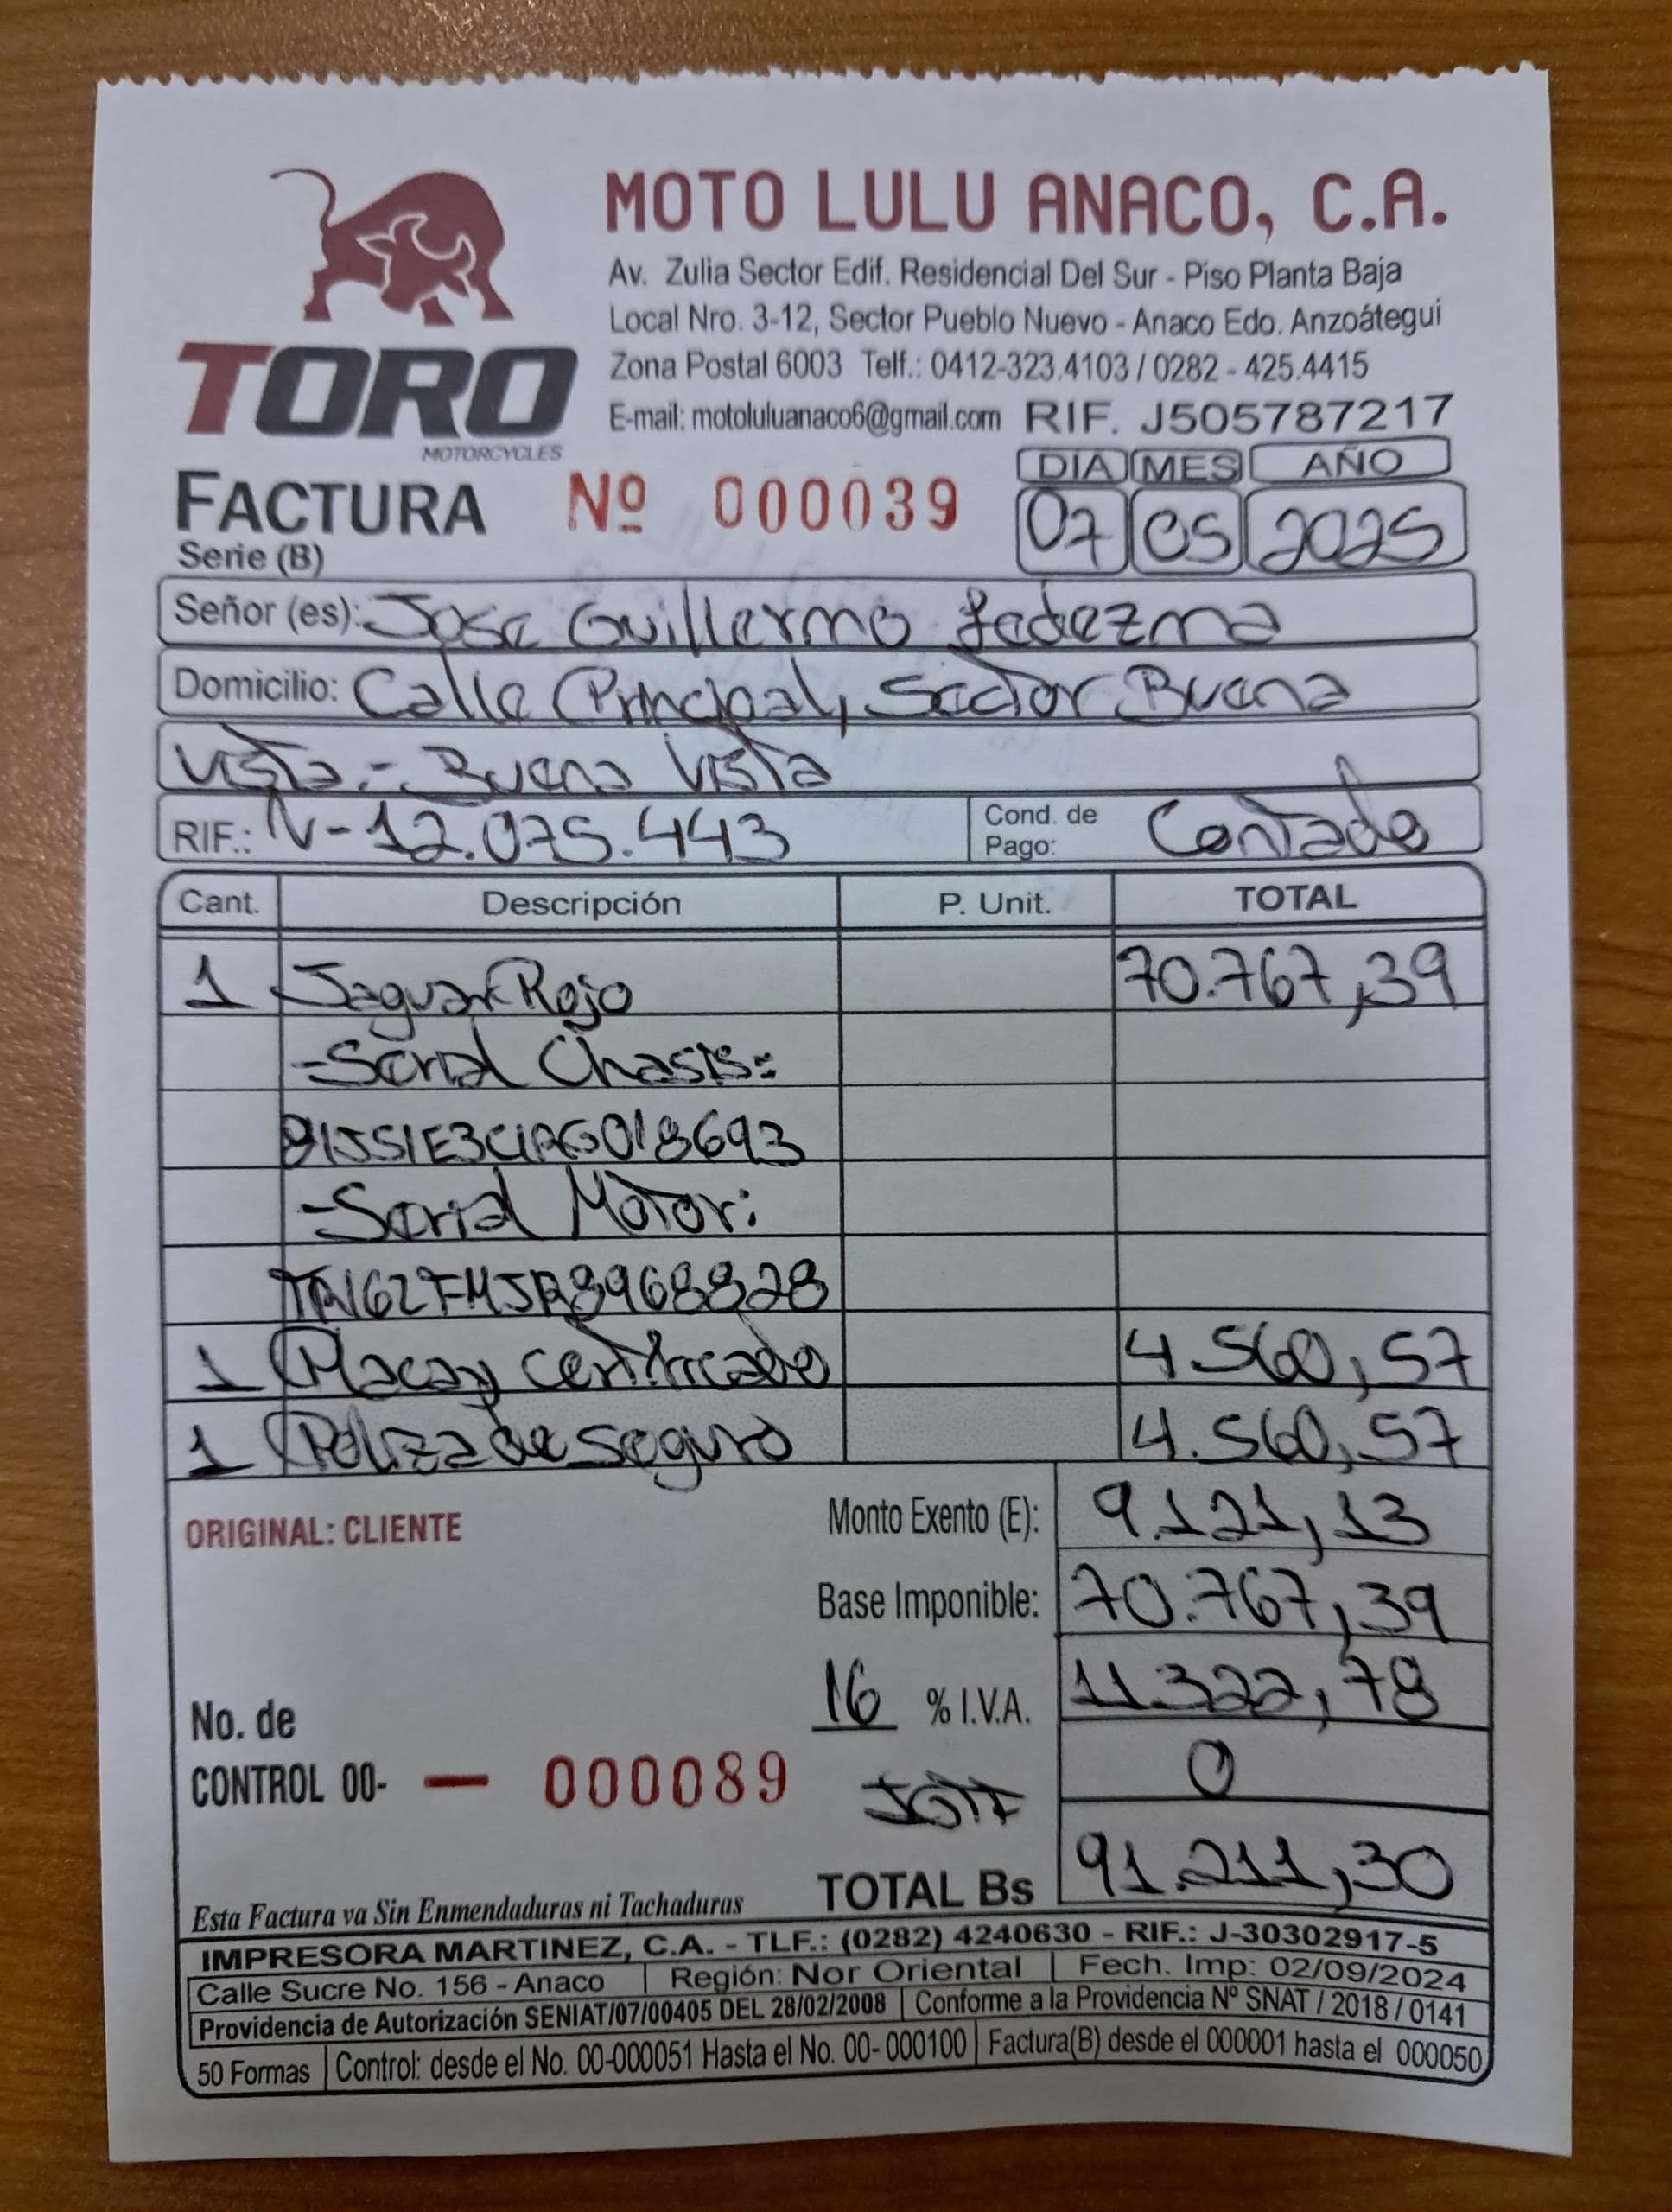 MOTO LULU ANACO, C.A.
Av. Zulia Sector Edif. Residencial Del Sur - Piso Planta Baja
Local Nro. 3-12, Sector Pueblo Nuevo - Anaco Edo. Anzoátegui
Zona Postal 6003 Telf.: 0412-323.4103 / 0282 - 425.4415
E-mail: motoluluanaco6@gmail.com RIF. J505787217
TORO
MOTORCYCLES
DIA MES AÑO
FACTURA Nº 000039 07 05 2025
Serie (B)
Señor (es): Jose Guillermo Ledezma
Domicilio: Calle Principal, Sector Buena
Vista - Buena Vista
RIF.: V-12.075.443 Cond. de Pago: Contado
Cant. Descripción P. Unit. TOTAL
1 Jaguar Rojo 70.767,39
- Serial Chasis:
- Serial Motor:
1 Placa y certificado 4.560,57
1 Poliza de seguro 4.560,57
ORIGINAL: CLIENTE
Monto Exento (E): 9.121,13
Base Imponible: 70.767,39
16 % I.V.A. 11.322,78
0
No. de
CONTROL 00- — 000089
TOTAL Bs 91.211,30
Esta Factura va Sin Enmendaduras ni Tachaduras
IMPRESORA MARTINEZ, C.A. - TLF.: (0282) 4240630 - RIF.: J-30302917-5
Calle Sucre No. 156 - Anaco Región: Nor Oriental Fech. Imp: 02/09/2024
Providencia de Autorización SENIAT/07/00405 DEL 28/02/2008 Conforme a la Providencia Nº SNAT / 2018 / 0141
50 Formas Control: desde el No. 00-000051 Hasta el No. 00- 000100 Factura(B) desde el 000001 hasta el 000050